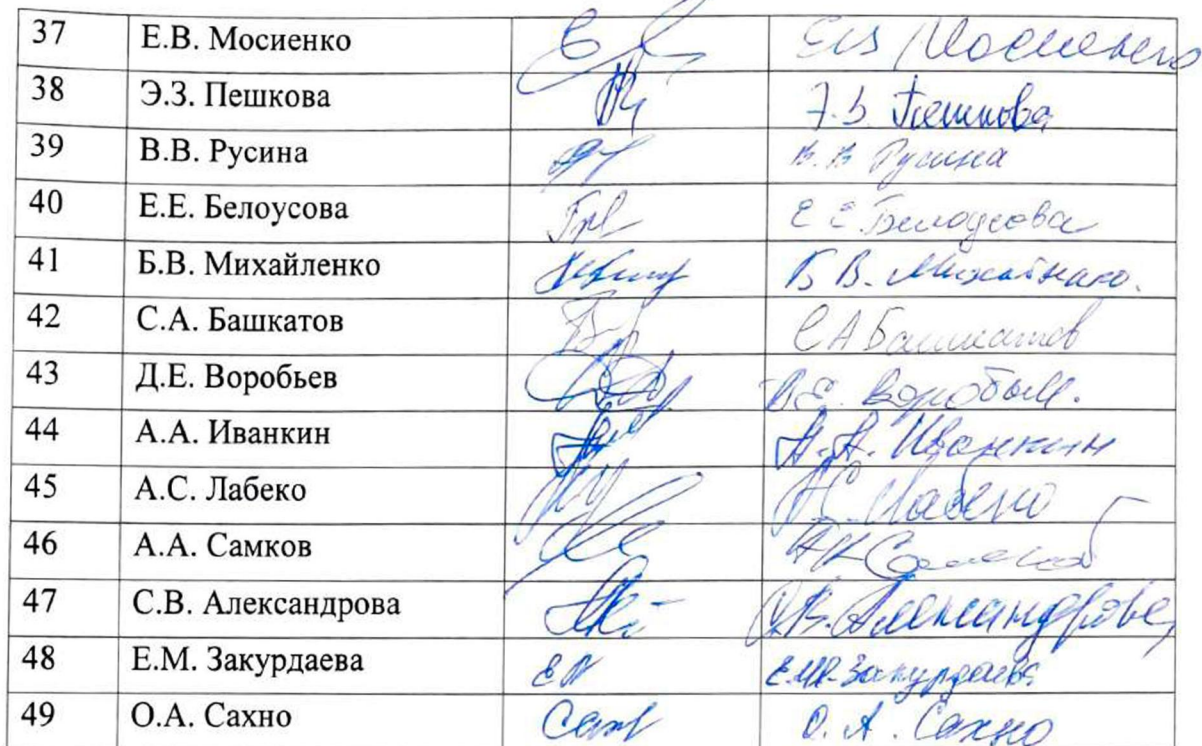 37 Е.В. Мосиенко ЕВ Мосиенко
38 Э.З. Пешкова Пешкова
39 В.В. Русина В.В Русина
40 Е.Е. Белоусова Е Е. Белоусова
41 Б.В. Михайленко Б В.
42 С.А. Башкатов С А Башкатов
43 Д.Е. Воробьев
44 А.А. Иванкин А.А. Иванкин
45 А.С. Лабеко АС. Лабеко
46 А.А. Самков
47 С.В. Александрова С.В. Александрова
48 Е.М. Закурдаева ЕМ Е.М. Закурдаева
49 О.А. Сахно Сах О. А. Сахно